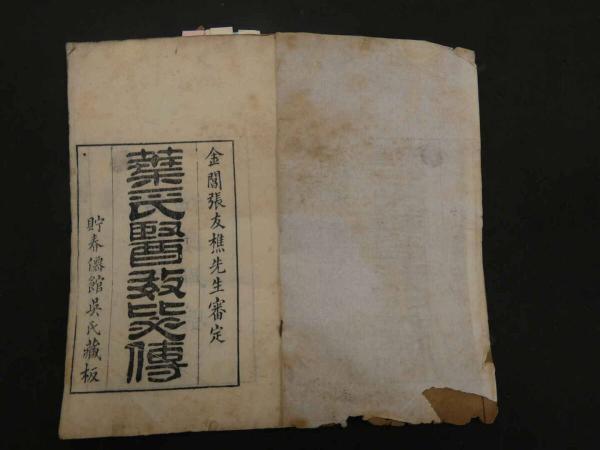 金閶張友樵先生審定
葉氏醫效毖傳
貯春僊館吳氏藏板